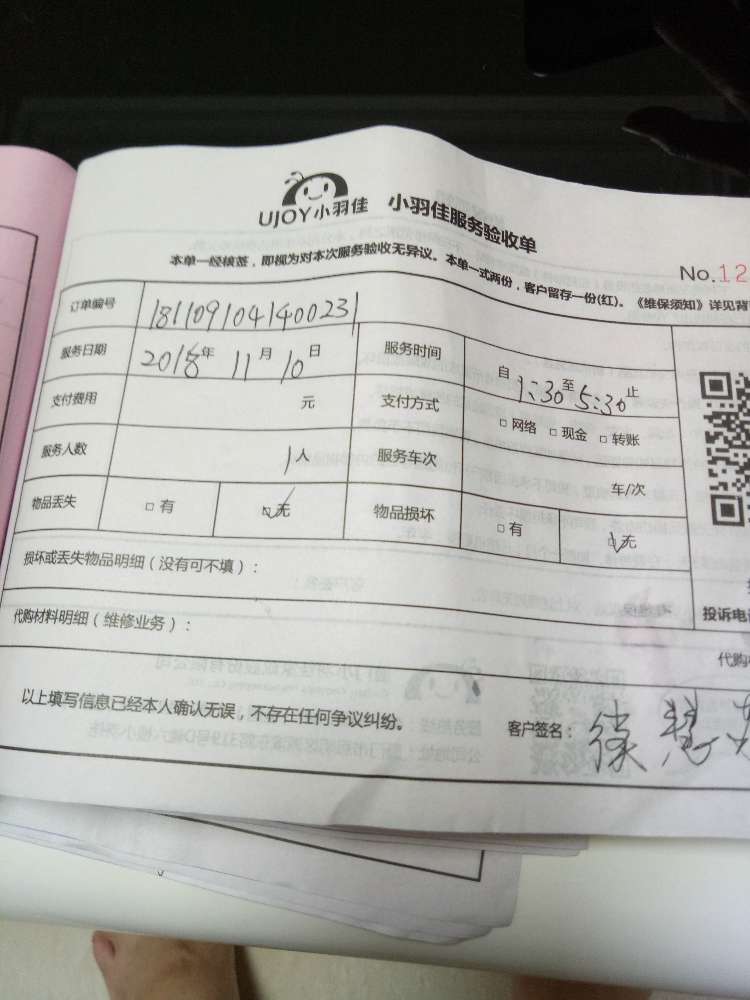 UJOY小羽佳 小羽佳服务验收单
本单一经核签，即视为对本次服务验收无异议。本单一式两份，客户留存一份(红)。《维保须知》详见背
No.12
订单编号 181109104140023
服务日期 2018年 11月 10日 服务时间 自 1:30 至 5:30 止
支付费用 元 支付方式 □ 网络 □ 现金 □ 转账
服务人数 1人 服务车次 车/次
物品丢失 □ 有 □无 物品损坏 □有 □无
损坏或丢失物品明细（没有可不填）：
投诉电
代购材料明细（维修业务）：
代购
以上填写信息已经本人确认无误，不存在任何争议纠纷。 客户签名：徐慧